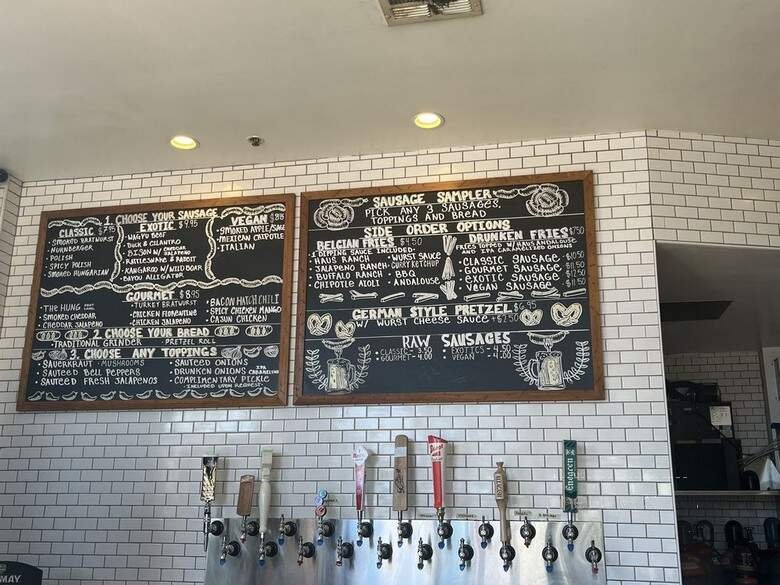 1. CHOOSE YOUR SAUSAGE
CLASSIC $7.95
SMOKED BRATWURST
NURNBERGER
POLISH
SPICY POLISH
SMOKED HUNGARIAN
EXOTIC $9.95
WAGYU BEEF
DUCK & CILANTRO
BISON W/ CHEDDAR JALAPENO
RATTLESNAKE & RABBIT
KANGAROO W/ WILD BOAR
BAYOU ALLIGATOR
VEGAN
SMOKED APPLE/SAGE
MEXICAN CHIPOTLE
ITALIAN
GOURMET $8.95
THE HUNG
SMOKED CHEDDAR
CHEDDAR JALAPENO
TURKEY BRATWURST
CHICKEN FLORENTINE
CHICKEN JALAPENO
BACON HATCH CHILI
SPICY CHICKEN MANGO
CAJUN CHICKEN
2. CHOOSE YOUR BREAD
TRADITIONAL GRINDER · PRETZEL ROLL
3. CHOOSE ANY TOPPINGS
SAUERKRAUT · MUSHROOMS
SAUTEED BELL PEPPERS
SAUTEED FRESH JALAPENOS
SAUTEED ONIONS
DRUNKEN ONIONS IPA CARAMELIZED
COMPLIMENTARY PICKLE
- INCLUDED UPON REQUEST -
SAUSAGE SAMPLER
PICK ANY 3 SAUSAGES,
TOPPINGS AND BREAD
SIDE ORDER OPTIONS
BELGIAN FRIES $4.50
1 DIPPING SAUCE INCLUDED:
HAUS RANCH
JALAPENO RANCH
BUFFALO RANCH
CHIPOTLE AIOLI
WURST SAUCE
CURRY KETCHUP
BBQ
ANDALOUSE
DRUNKEN FRIES $7.50
FRIES TOPPED W/ HAUS ANDALOUSE
AND IPA CARAMELIZED ONIONS
CLASSIC SAUSAGE $10.50
GOURMET SAUSAGE $11.50
EXOTIC SAUSAGE $12.50
VEGAN SAUSAGE $11.50
GERMAN STYLE PRETZEL $6.95
W/ WURST CHEESE SAUCE + $2.50
RAW SAUSAGES
CLASSIC - 3.50
GOURMET - 4.00
EXOTICS - 4.50
VEGAN - 4.00